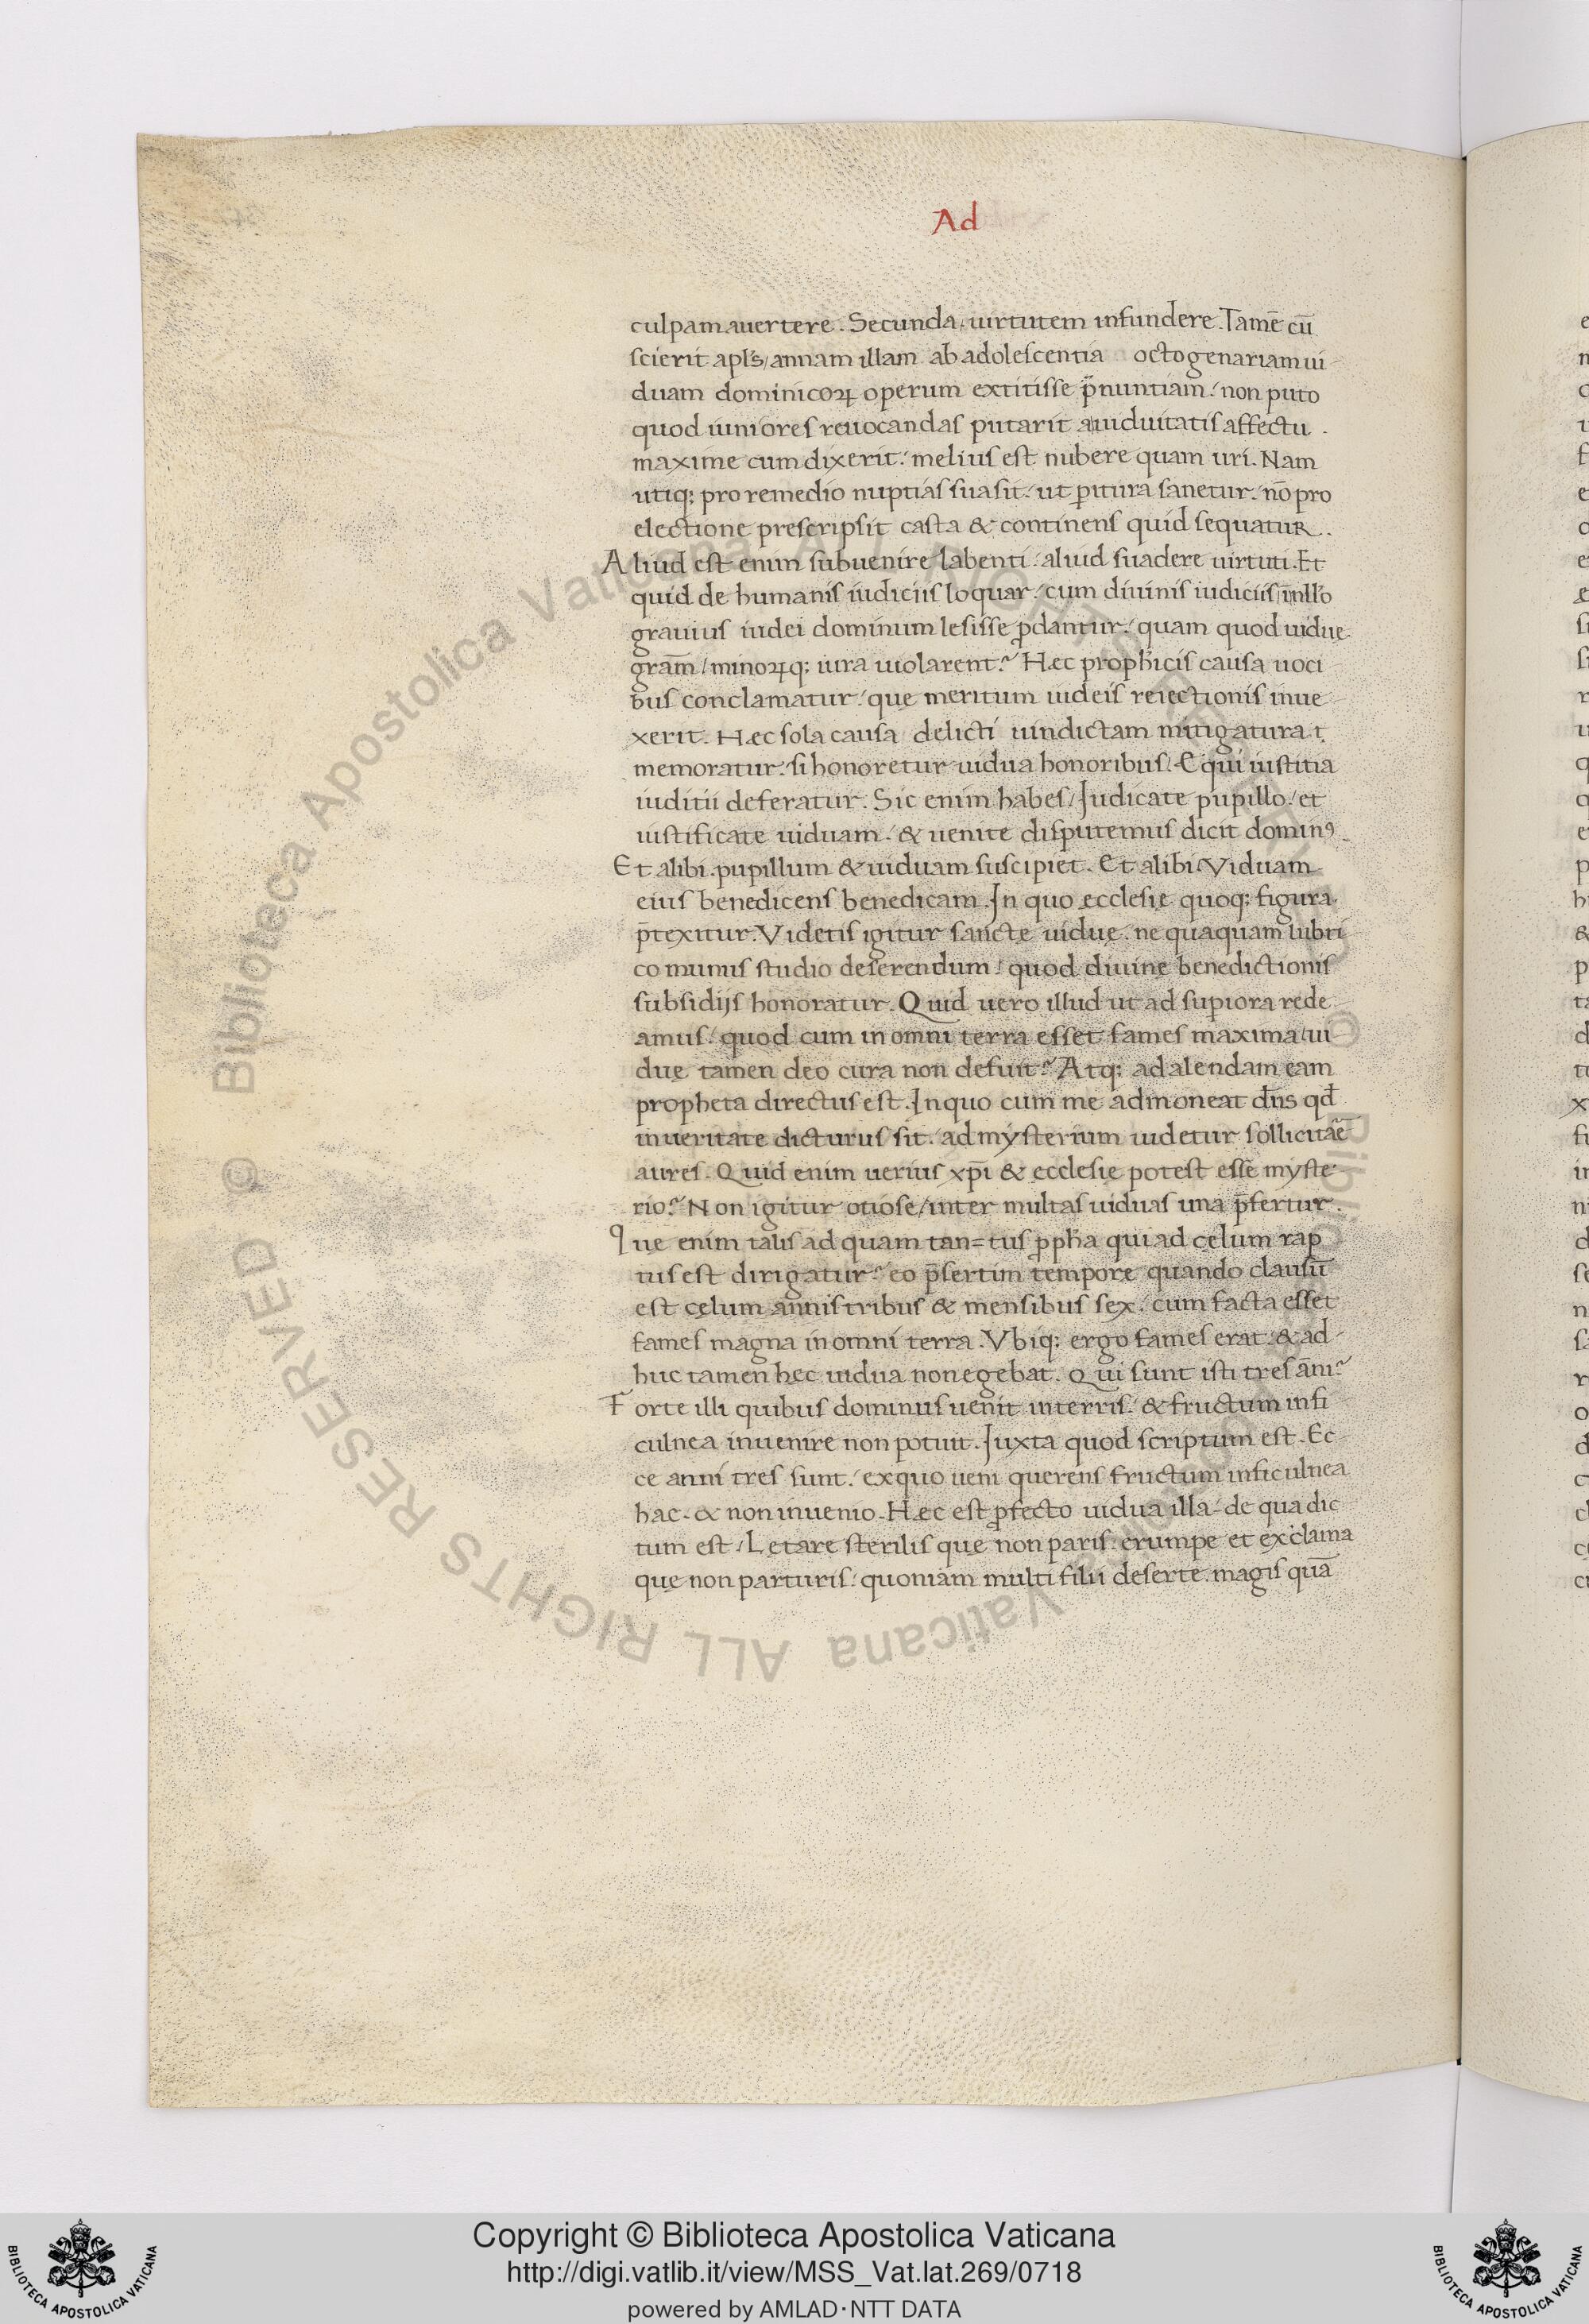 Ad
culpam auertere. Secunda, uirtutem infundere. Tamē cū
scierit apl's, annam illam ab adolescentia octogenariam ui-
duam dominicoꝝ operum extitisse p̄nuntiam, non puto
quod iuniores reuocandas putarit a uiduitatis affectu.
maxime cum dixerit, melius est nubere quam uri. Nam
utiq; pro remedio nuptias suasit, ut ꝑitura sanetur, nō pro
electione prescripsit casta & continens quid sequatur.
Aliud est enim subuenire labenti, aliud suadere uirtuti. Et
quid de humanis iudiciis loquar, cum diuinis iudiciis in nullo
grauius iudei dominum lesisse ꝓdantur, quam quod uidue
gram̄, minoꝝq; iura uiolarent? Hæc prophicis causa uoci-
bus conclamatur, quę meritum iudeis reiectionis inue-
xerit. Hæc sola causa delicti uindictam mitigatura
memoratur, si honoretur uidua honoribus. Equi iustitia
iuditii deferatur. Sic enim habes, Judicate pupillo, et
iustificate uiduam, & uenite disputemus dicit dominꝰ.
Et alibi. pupillum & uiduam suscipiet. Et alibi. Viduam
eius benedicens benedicam. In quo ecclesię quoq; figura
p̄texitur. Videtis igitur sanctę uiduę, ne quaquam lubri-
co munus studio deserendum, quod diuinę benedictionis
subsidijs honoratur. Quid uero illud ut ad suꝑiora rede-
amus, quod cum in omni terra esset fames maxima, ui-
due tamen deo cura non defuit? Atq; ad alendam eam
propheta directus est. In quo cum me admoneat dn̄s qđ
in ueritate dicturus sit, ad mysterium uidetur sollicitāē
aures. Quid enim uerius xp̄i & ecclesię potest esse myste-
rio? Non igitur otiose, inter multas uiduas una p̄fertur.
Que enim talis ad quam tan=tus ꝓph̄a qui ad cęlum rap
tus est dirigatur? eo p̄sertim tempore quando clausū
est cęlum annis tribus & mensibus sex, cum facta esset
fames magna in omni terra. Vbiq; ergo fames erat, & ad-
huc tamen hęc uidua non egebat. Qui sunt isti tres ān̄i?
Forte illi quibus dominus uenit in terris, & fructum in fi-
culnea inuenire non potuit. Juxta quod scriptum est. Ec-
ce anni tres sunt, ex quo ueni querens fructum in ficulnea
hac, & non inuenio. Hæc est ꝓfecto uidua illa, de qua dic
tum est. Lętare sterilis que non paris. erumpe et exclama
quę non parturis, quoniam multi filii desertę, magis quā
Biblioteca Apostolica Vaticana ALL RIGHTS RESERVED ©
Biblioteca Apostolica Vaticana ALL RIGHTS RESERVED ©
BIBLIOTECA APOSTOLICA VATICANA
Copyright © Biblioteca Apostolica Vaticana
http://digi.vatlib.it/view/MSS_Vat.lat.269/0718
powered by AMLAD·NTT DATA
BIBLIOTECA APOSTOLICA VATICANA